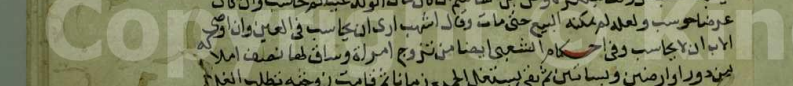 عرضا حوسب ولعله لم يمكنه البيع حتى مات وقال اشهب ارى ان يحاسب في العين وان اوصى
الاب ان لا يحاسب وفي احكام الشعبي ايضا من تزوج امراة وساق لها نصف املاكه
من دور وارضين وبساتين ثم بقي يستغل الجميع زمانا ثم قامت زوجته تطلب الغلة